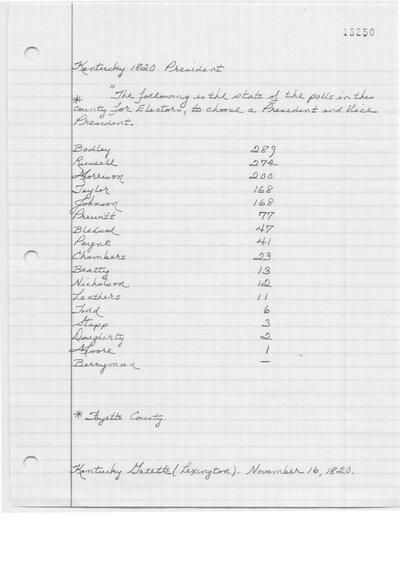 13250
Kentucky 1820 President
"The following is the state of the polls in this
* county for Electors, to choose a President and Vice
President.
Bodley 289
Russell 274
Morrison 200
Taylor 168
Johnson 168
Prewitt 77
Bledsol 47
Payne 41
Chambers 23
Beatty 13
Nicholson 12
Leathers 11
Todd 6
Stapp 3
Dougherty 2
Moore 1
Berryman — "
* Fayette County.
Kentucky Gazette (Lexington). November 16, 1820.